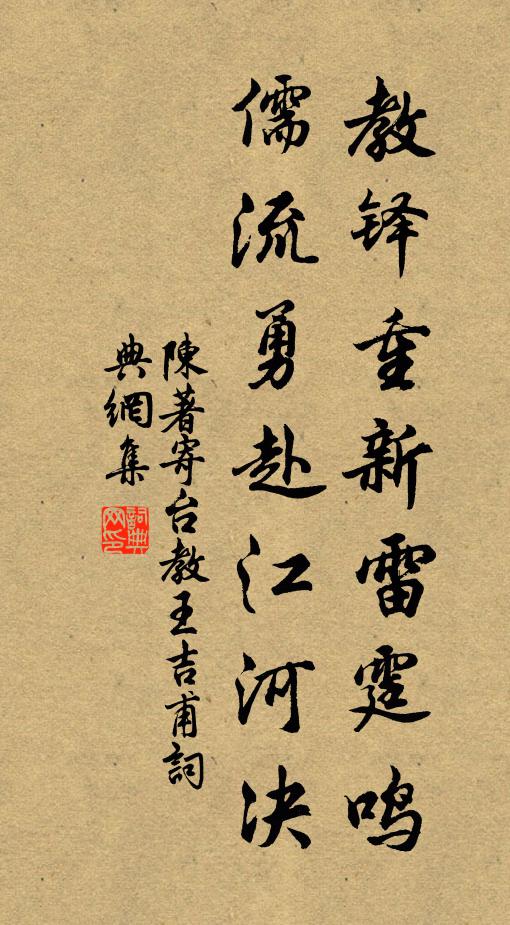 教铎重新雷霆鸣
儒流勇赴江河决
陳著寄台教王吉甫詞
典網集
詞典网印